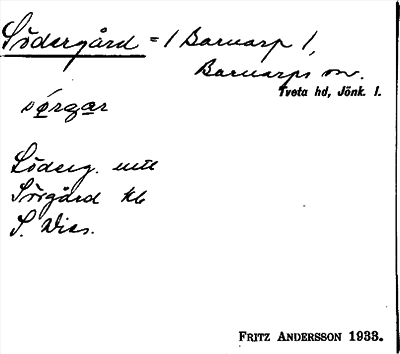 Södergård = 1 Barnarp 1,
Barnarps sn.
Tveta hd, Jönk. l.
sǿrgar
Söderg. mtl
Sörgård kb
S. Dies.
FRITZ ANDERSSON 1933.